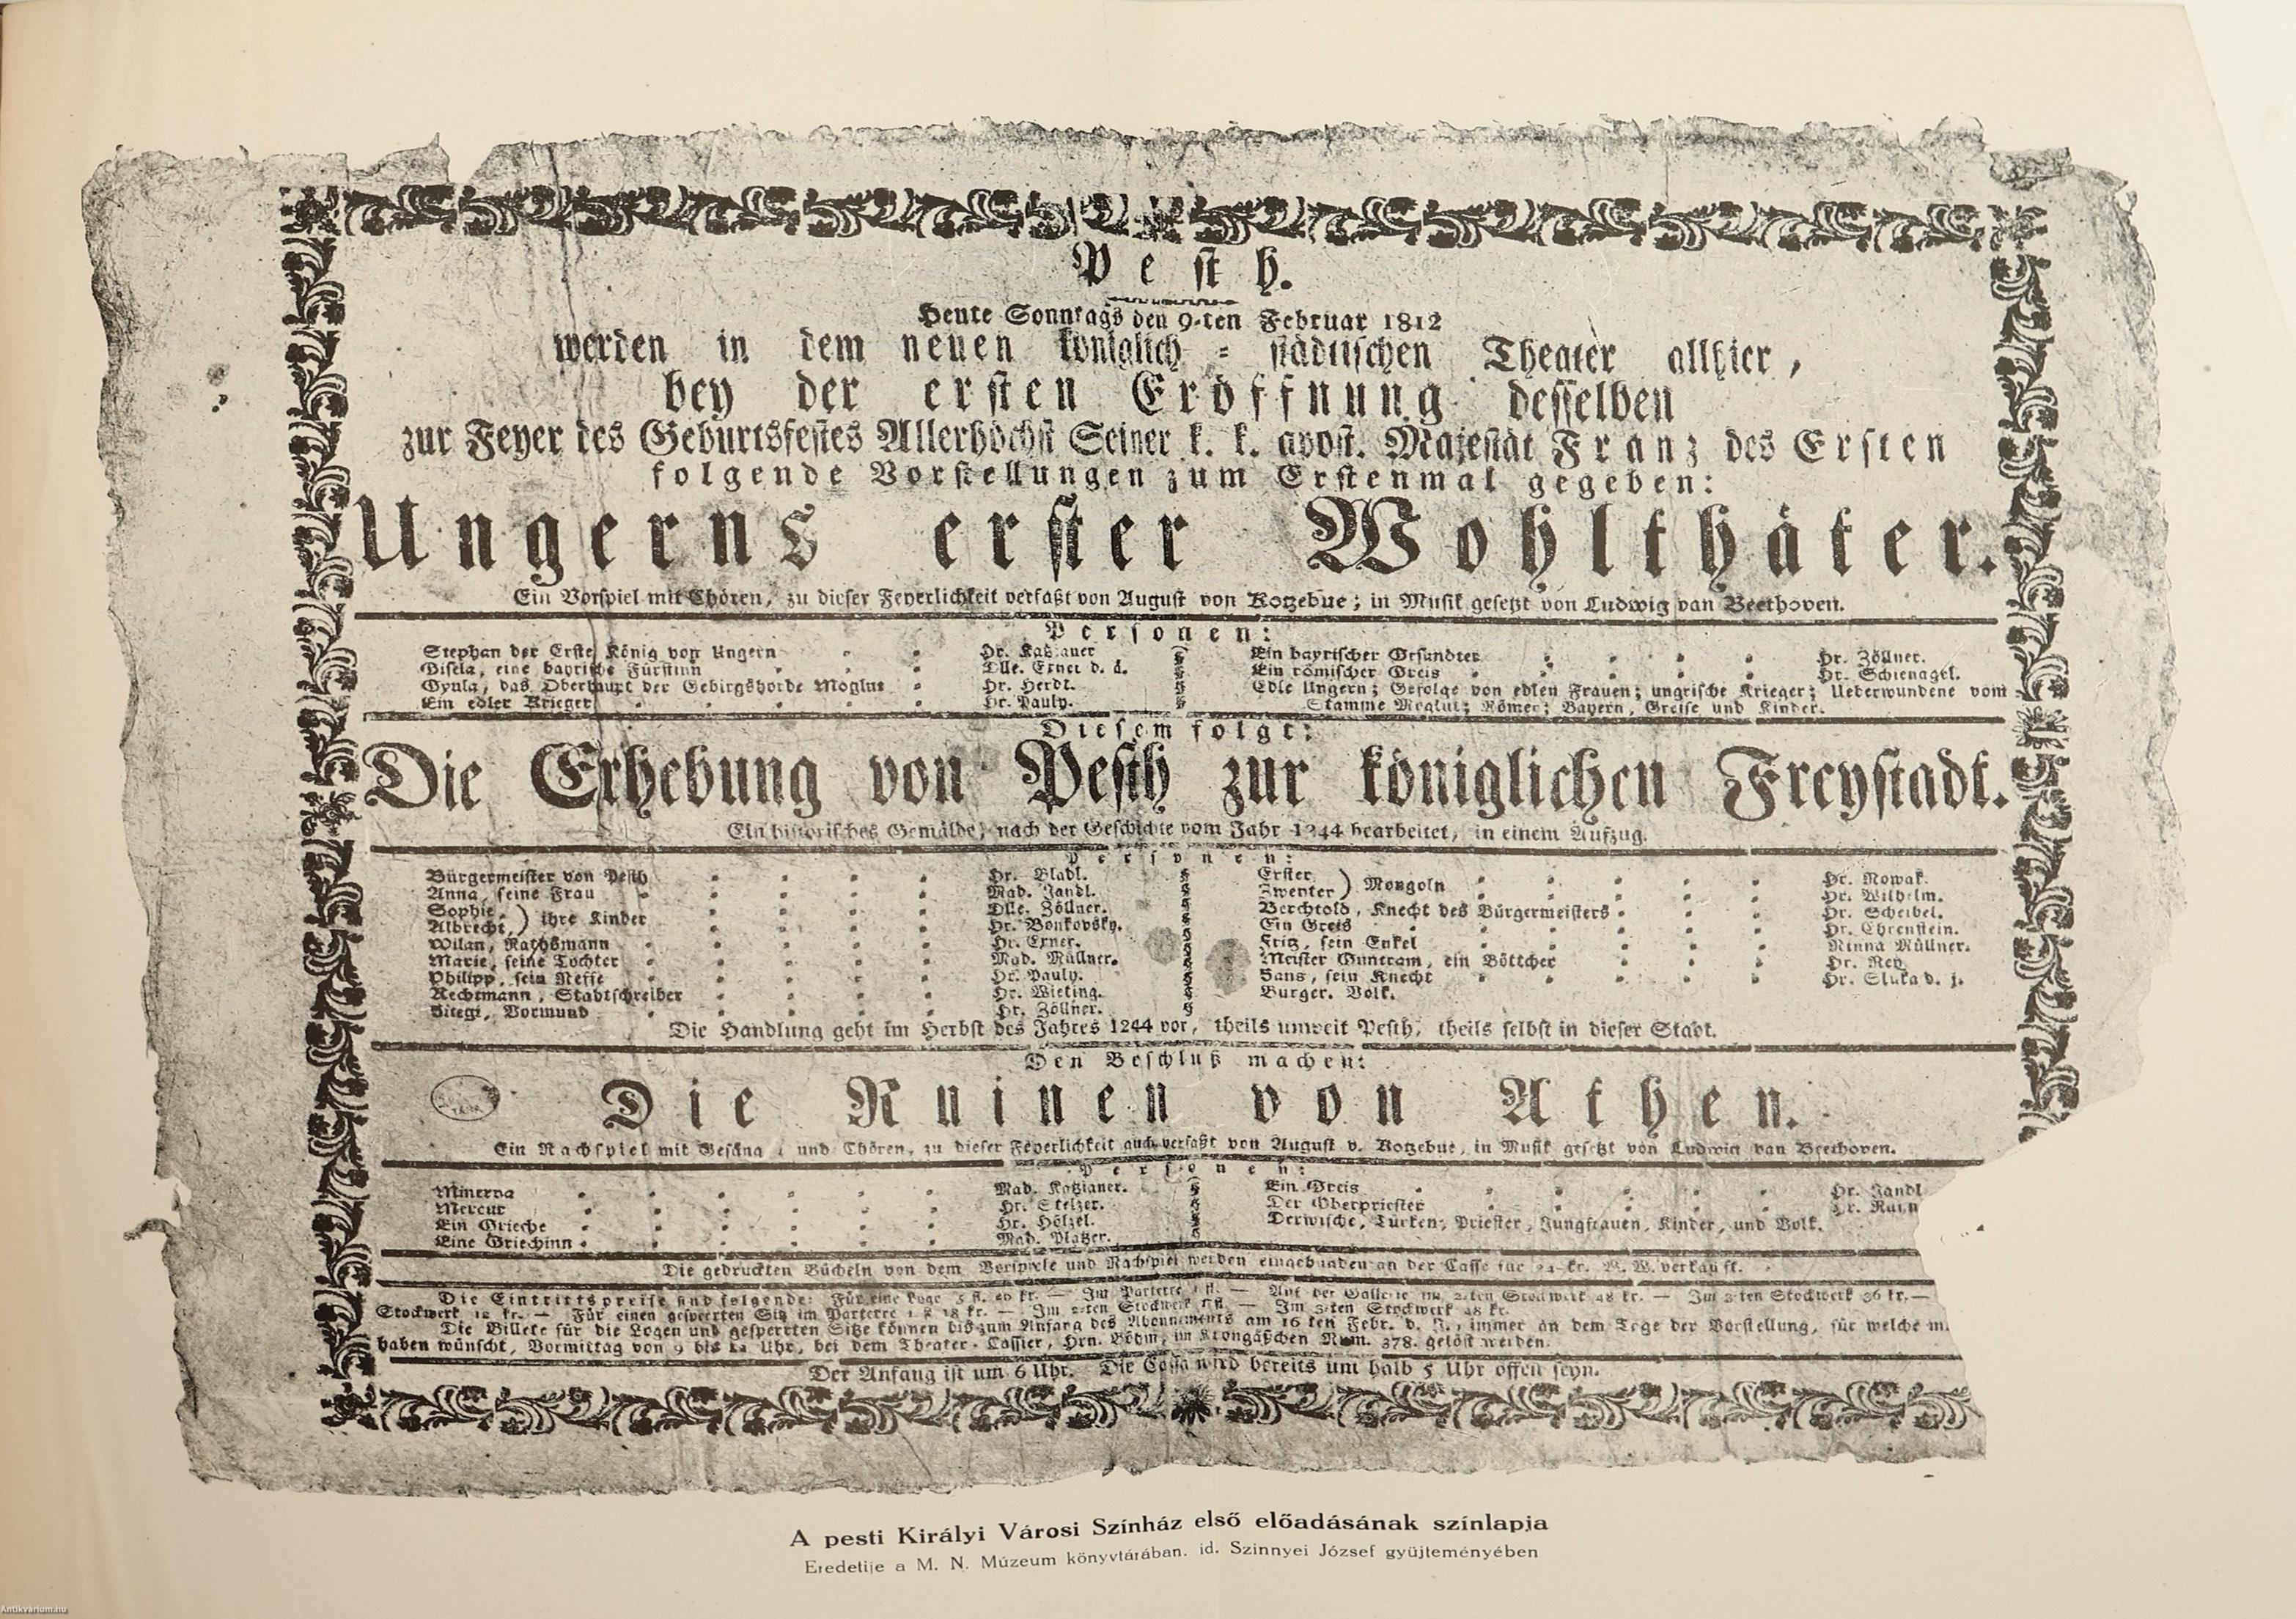 Pesth.
Heute Sonntags den 9-ten Februar 1812
werden in dem neuen königlich = städtischen Theater allhier,
bey der ersten Eröffnung desselben
zur Feyer des Geburtsfestes Allerhöchst Seiner k. k. apost. Majestät Franz des Ersten
folgende Vorstellungen zum Erstenmal gegeben:
Ungerns erster Wohlthäter.
Ein Vorspiel mit Chören, zu dieser Feyerlichkeit verfaßt von August von Kotzebue; in Musik gesetzt von Ludwig van Beethoven.
Personen:
Stephan der Erste, König von Ungern Hr. Katzianer
Gisela, eine bayrische Fürstinn Dlle. Exner d. ä.
Gyula, das Oberhaupt der Gebirgshorde Moglut Hr. Herdt.
Ein edler Krieger Hr. Pauly.
Ein bayrischer Gesandter Hr. Zöllner.
Ein römischer Greis Hr. Schienagel.
Edle Ungern; Gefolge von edlen Frauen; ungrische Krieger; Ueberwundene vom
Stamme Moglut; Römer; Bayern, Greise und Kinder.
Diesem folgt:
Die Erhebung von Pesth zur königlichen Freystadt.
Ein historisches Gemälde, nach der Geschichte vom Jahr 1244 bearbeitet, in einem Aufzug.
Personen:
Bürgermeister von Pesth Hr. Bladl.
Anna, seine Frau Mad. Jandl.
Sophie, ) ihre Kinder Dlle. Zöllner.
Albrecht, ) Hr. Bonkovsky.
Wilan, Rathsmann Hr. Exner.
Marie, seine Tochter Mad. Müllner.
Philipp, sein Neffe Hr. Pauly.
Rechtmann, Stadtschreiber Hr. Wieting.
Vormund Hr. Zöllner.
Erster ) Mongoln Hr. Nowak.
Zweyter ) Hr. Wilhelm.
Berchtold, Knecht des Bürgermeisters Hr. Scheibel.
Ein Greis Hr. Ehrenstein.
Fritz, sein Enkel Ninna Müllner.
Meister Guntram, ein Böttcher Hr. Rey
Hans, sein Knecht Hr. Sluka d. j.
Bürger. Volk.
Die Handlung geht im Herbst des Jahres 1244 vor, theils unweit Pesth, theils selbst in dieser Stadt.
Den Beschluß machen:
Die Ruinen von Athen.
Ein Nachspiel mit und Chören, zu dieser Feyerlichkeit auch verfaßt von August v. Kotzebue, in Musik gesetzt von Ludwig van Beethoven.
Personen:
Minerva Mad. Kotzianer.
Mercur Hr. Stelzer.
Ein Grieche Hr. Hölzel.
Eine Griechinn Mad. Platzer.
Ein Greis Hr. Jandl
Der Oberpriester Hr.
Derwische, Türken, Priester, Jungfrauen, Kinder, und Volk.
Die gedruckten Bücheln von dem Vorspiele und Nachspiel werden eingebunden an der Casse für 24 kr. W. W. verkauft.
Die Eintrittspreise sind folgende: Für eine Loge 5 fl. kr. — Im Parterre 1 fl. — Auf der Gallerie im 2-ten Stockwerk 48 kr. — Im 3-ten Stockwerk 36 kr. —
Stockwerk 12 kr. — Für einen gesperrten Sitz im Parterre 1 fl 18 kr. — Im 2-ten Stockwerk 1 fl. — Im 3-ten Stockwerk 48 kr.
Die Billete für die Logen und gesperrten Sitze können bis zum Anfang des Abonnements am 16 ten Febr. d. J., immer an dem Tage der Vorstellung, für welche m.
haben wünscht, Vormittag von 9 bis 12 Uhr, bei dem Theater-Cassier, Hrn. Böhm, im Krongäßchen Num. 378. gelöst werden.
Der Anfang ist um 6 Uhr. Die Cassa wird bereits um halb 5 Uhr offen seyn.
A pesti Királyi Városi Színház első előadásának színlapja
Eredetije a M. N. Múzeum könyvtárában. id. Szinnyei József gyüjteményében
Antikvárium.hu